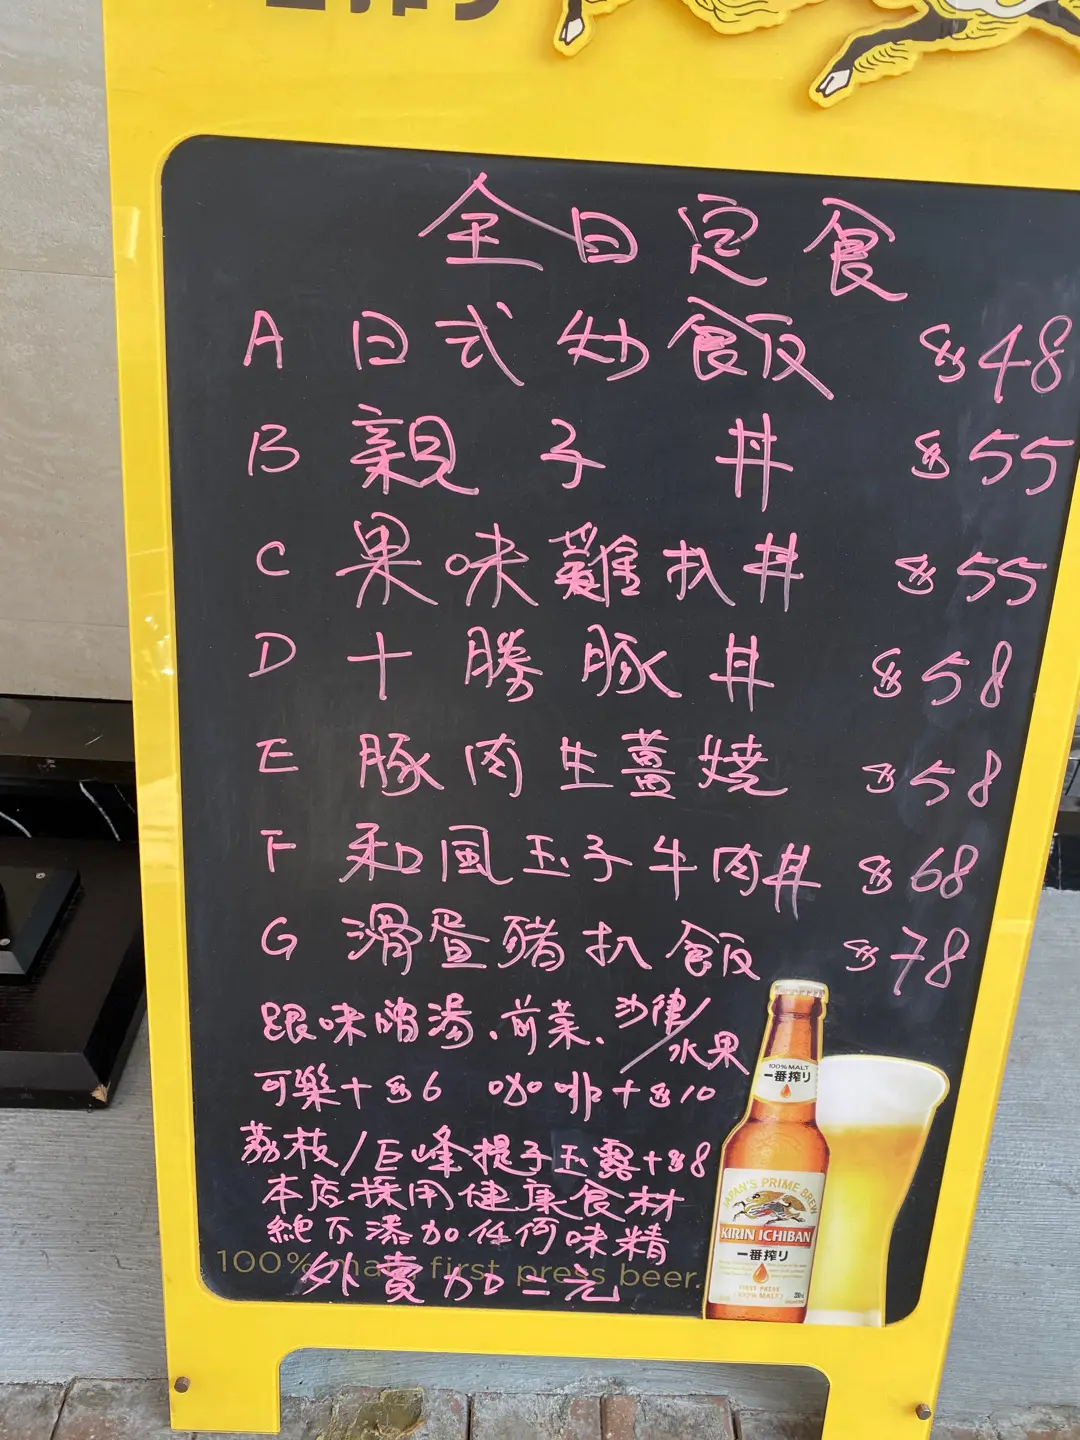 全日定食
A 日式炒飯 $48
B 親子丼 $55
C 果味雞扒丼 $55
D 十勝豚丼 $58
E 豚肉生薑燒 $58
F 和風玉子牛肉丼 $68
G 滑蛋豬扒飯 $78
跟味噌湯、前菜、沙律/水果
可樂+$6 咖啡+$10
荔枝/巨峰提子玉露+$8
本店採用健康食材
絕不添加任何味精
外賣加二元
100% malt first press beer.
100% MALT
一番搾り
JAPAN'S PRIME BREW
KIRIN ICHIBAN
一番搾り
FIRST PRESS
100% MALT